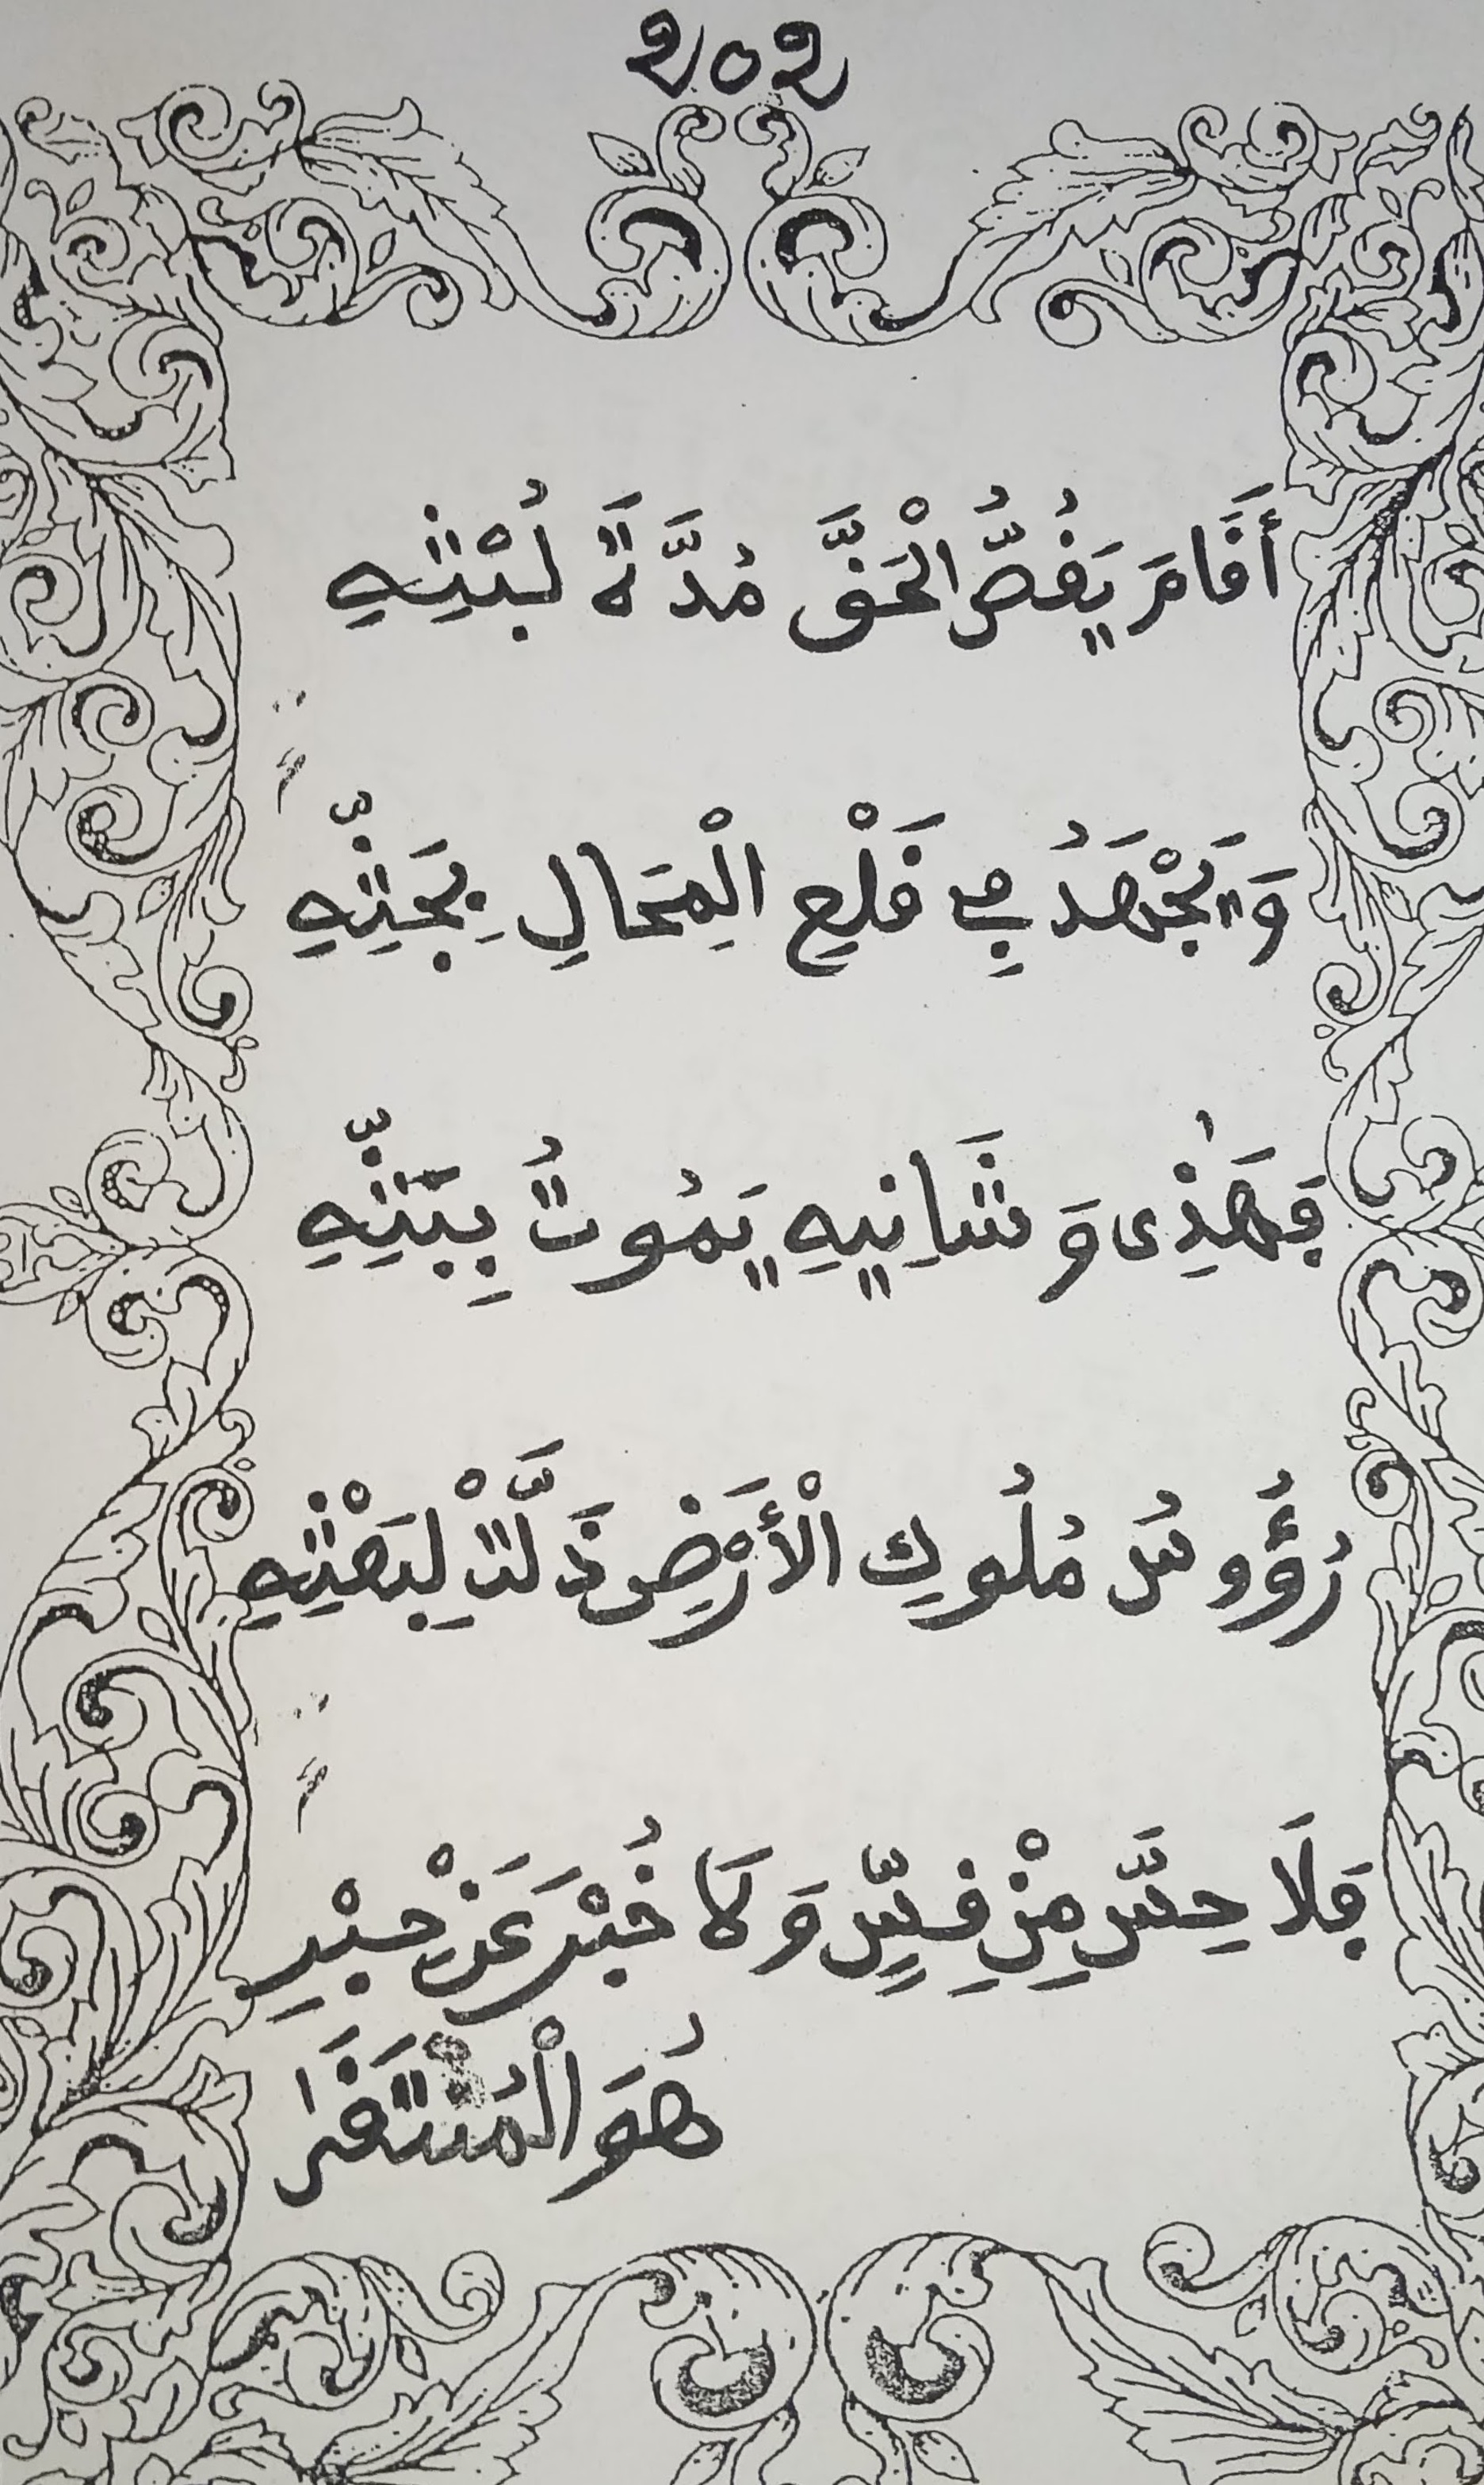 202
أَقَامَ يَقُصُّ الْحَقَّ مُدَّةَ لُبْثِهِ
وَيَجْهَدُ فِي قَلْعِ الْمِحَالِ بِجَثِّهِ
فَهٰذِى وَشَانِيهِ يَمُوتُ بِبَثِّهِ
رُؤُوسُ مُلُوكِ الْأَرْضِ ذَلَّتْ لِبَعْثِهِ
فَلَا حِسَّ مِنْ قِسٍّ وَلَا خُبْرَ عَنْ حِبْرِ
هُوَ الْمُنْتَقَىٰ